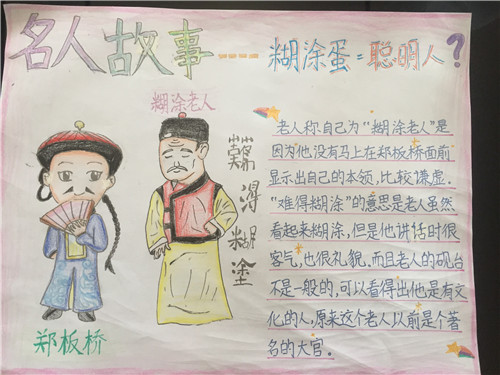 名人故事----糊涂蛋=聪明人?
糊涂老人
難得糊塗
郑板桥
老人称自己为“糊涂老人”是
因为他没有马上在郑板桥面前
显示出自己的本领,比较谦虚.
“难得糊涂”的意思是老人虽然
看起来糊涂,但是他讲话时很
客气,也很礼貌,而且老人的砚台
不是一般的,可以看得出他是有文
化的人,原来这个老人以前是个著
名的大官.